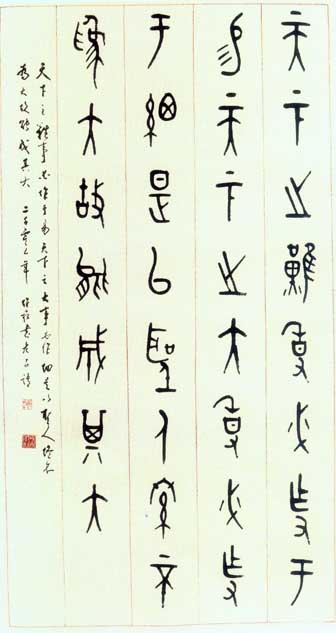 天下之難事必作于
易天下之大事必作
于細是以聖人終不
為大故能成其大
天下之難事必作于易天下之大事必作細是以聖人終不
為大故能成其大 二千零年 書老子語